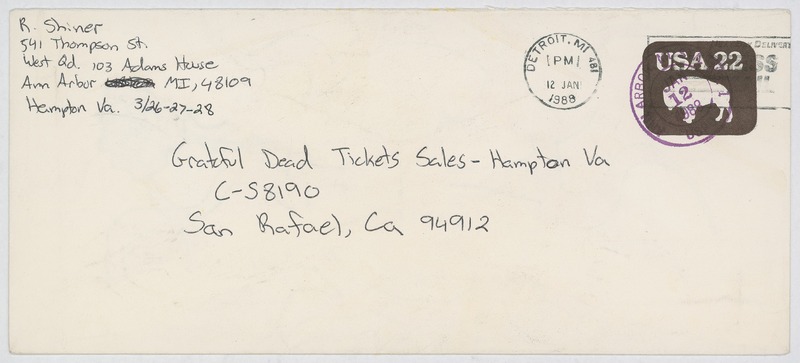 R. Shiner
541 Thompson St.
West Qd. 103 Adams House
Ann Arbor MI, 48109
Hampton Va. 3/26-27-28
DETROIT, MI 481
PM
12 JAN
1988
DELIVERY
USA 22
ARBO
12
Grateful Dead Tickets Sales - Hampton Va
C-S8190
San Rafael, Ca 94912